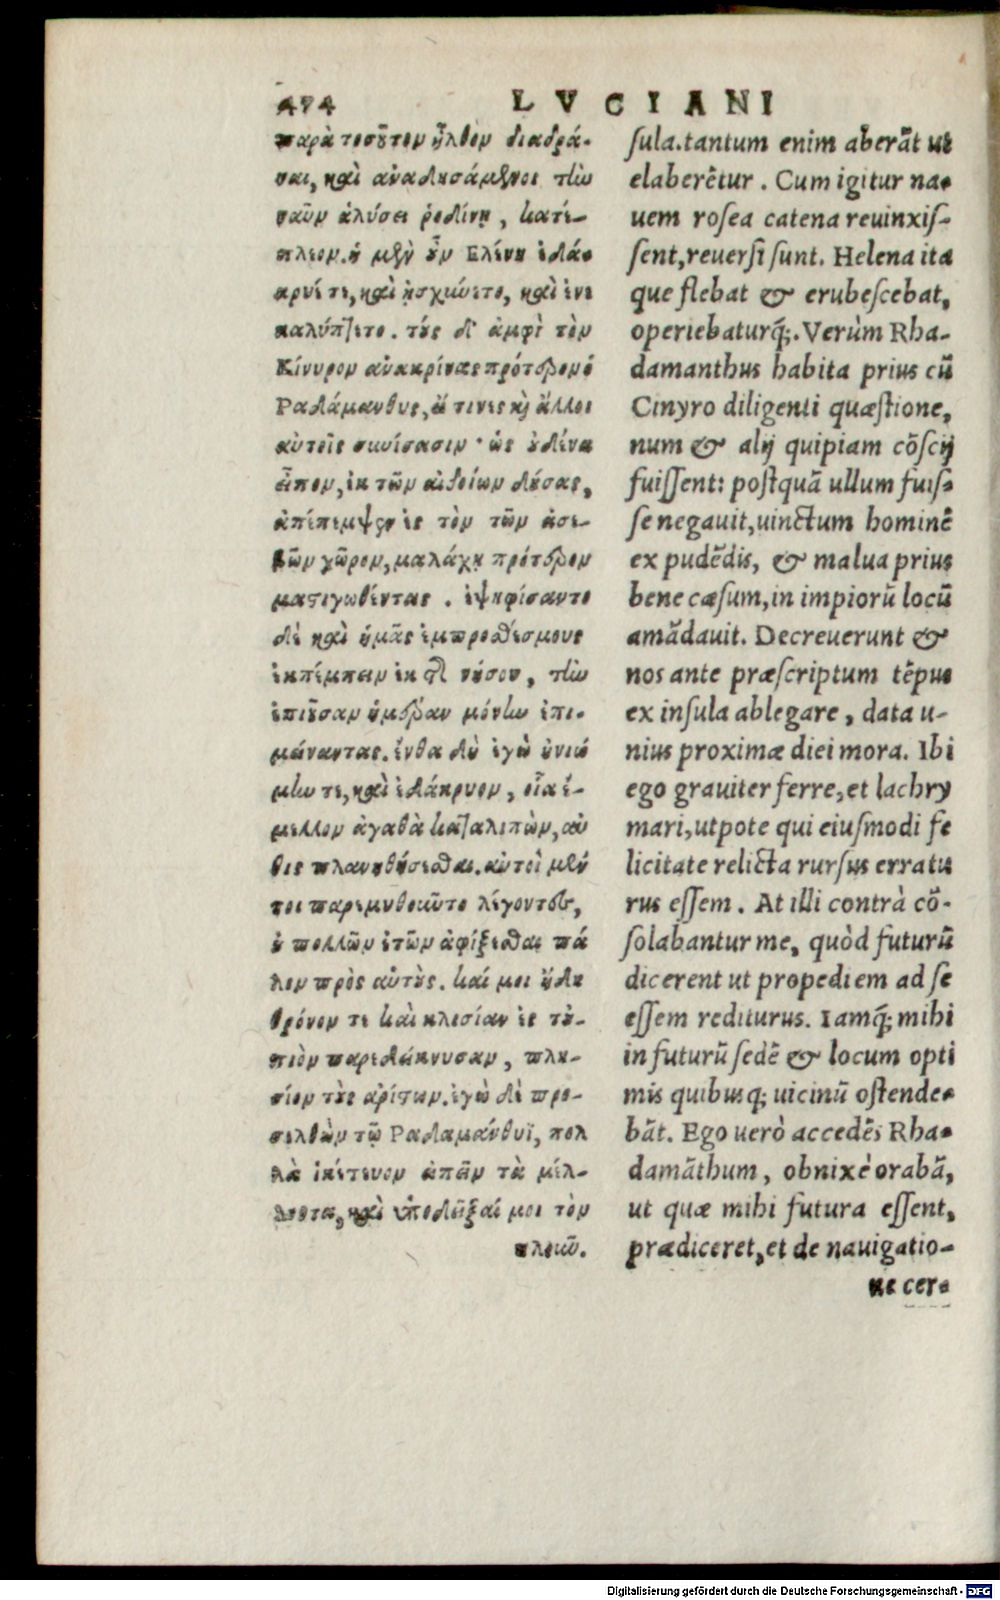 474 LVCIANI
παρὰ τοσοῦτον ἦλθον διαδρά-
ναι, καὶ ἀναδησάμενοι τὴν
ναῦν ἁλύσει ῥοδίνῃ, κατέ-
πλεον. ἡ μὲν οὖν Ελένη ἐδά-
κρυέ τε, καὶ ᾐσχύνετο, καὶ ἐνε
καλύπτετο. τοὺς δ' ἀμφὶ τὸν
Κίνυρον ἀνακρίνας πρότερον ὁ
Ραδάμανθυς, εἴ τινες καὶ ἄλλοι
αὐτοῖς συνίσασιν· ὡς οὐδένα
εἶπον, ἐκ τῶν αἰδοίων δήσας,
ἀπέπεμψεν ἐς τὸν τῶν ἀσε-
βῶν χῶρον, μαλάχῃ πρότερον
μαστιγωθέντας. ἐψηφίσαντο
δὲ καὶ ἡμᾶς ἐμπροθέσμους
ἐκπέμπειν ἐκ τῆς νήσου, τὴν
ἐπιοῦσαν ἡμέραν μόνην ἐπι-
μείναντας. ἔνθα δὴ ἐγὼ ἠνιώ
μην τε, καὶ ἐδάκρυον, οἷα ἔ-
μελλον ἀγαθὰ καταλιπὼν, αὖ
θις πλανηθήσεσθαι. αὐτοὶ μέν
τοι παρεμυθοῦντο λέγοντες,
οὐ πολλῶν ἐτῶν ἀφίξεσθαι πά
λιν πρὸς αὐτούς. καί μοι ἤδη
θρόνον τε καὶ κλισίαν ἐς τοὐ-
πιὸν παρεδείκνυσαν, πλη-
σίον τοὺς ἀρίστων. ἐγὼ δὲ προ-
σελθὼν τῷ Ραδαμάνθυϊ, πολ
λὰ ἱκέτευον εἰπεῖν τὰ μέλ-
λοντα, καὶ ὑποδεῖξαί μοι τὸν
πλοῦν.
sula. tantum enim aberāt ut
elaberētur. Cum igitur na-
uem rosea catena reuinxis-
sent, reuersi sunt. Helena ita
que flebat & erubescebat,
operiebaturq́;. Verùm Rha-
damanthus habita prius cū
Cinyro diligenti quæstione,
num & alij quipiam cōscij
fuissent: postquā ullum fuis-
se negauit, uinctum hominē
ex pudēdis, & malua prius
bene cæsum, in impiorū locū
amādauit. Decreuerunt &
nos ante præscriptum tēpus
ex insula ablegare, data u-
nius proximæ diei mora. Ibi
ego grauiter ferre, et lachry
mari, utpote qui eiusmodi fe
licitate relicta rursus erratu
rus essem. At illi contrà cō-
solabantur me, quòd futurū
dicerent ut propediem ad se
essem rediturus. Iamq́; mihi
in futurū sedē & locum opti
mis quibusq; uicinū ostende-
bāt. Ego uerò accedēs Rha-
damāthum, obnixè orabā,
ut quæ mihi futura essent,
prædiceret, et de nauigatio-
ne cer-
Digitalisierung gefördert durch die Deutsche Forschungsgemeinschaft - DFG